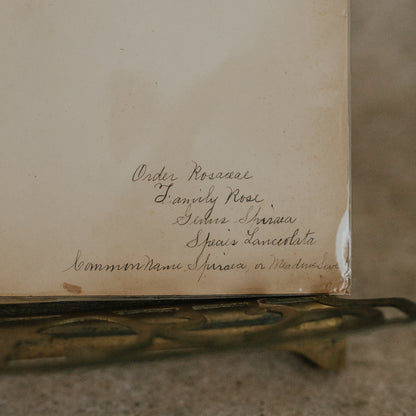 Order Rosaceae
Family Rose
Genus Spiraea
Specis Lanceolata
Common Name Spiraea, or Meadow